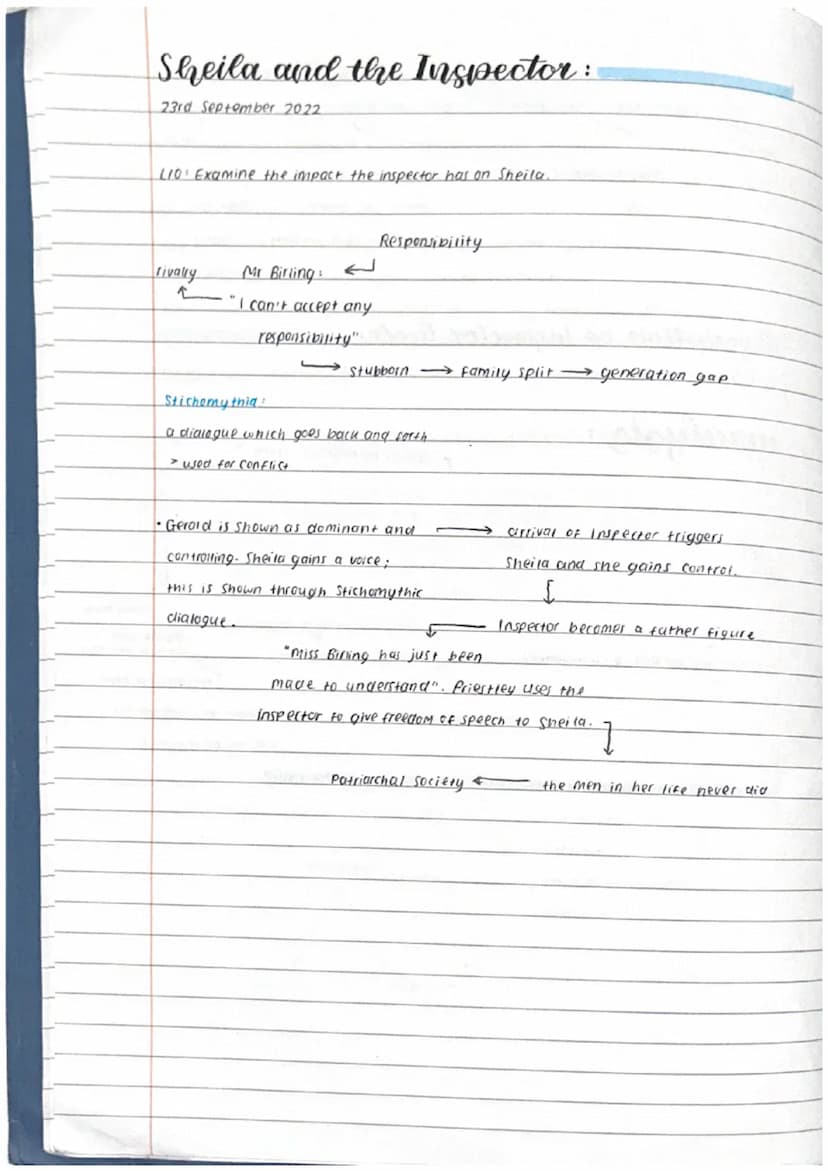 Sheila and the Inspector:
23rd September 2022
LIO: Examine the impact the inspector has on Sheila.
Responsibility
rivalry Mr Birling:
"I can't accept any
responsibility"
stubborn → family split → generation gap
Stichomythia:
a dialogue which goes back and forth
> used for conflict
• Gerald is shown as dominant and → arrival of Inspector triggers
controlling. Sheila gains a voice; Sheila and she gains control.
this is shown through Stichomythic
dialogue. Inspector becomes a father figure
"Miss Birling has just been
made to understand". Priestley uses the
inspector to give freedom of speech to Sheila.
Patriarchal society ← the men in her life never did